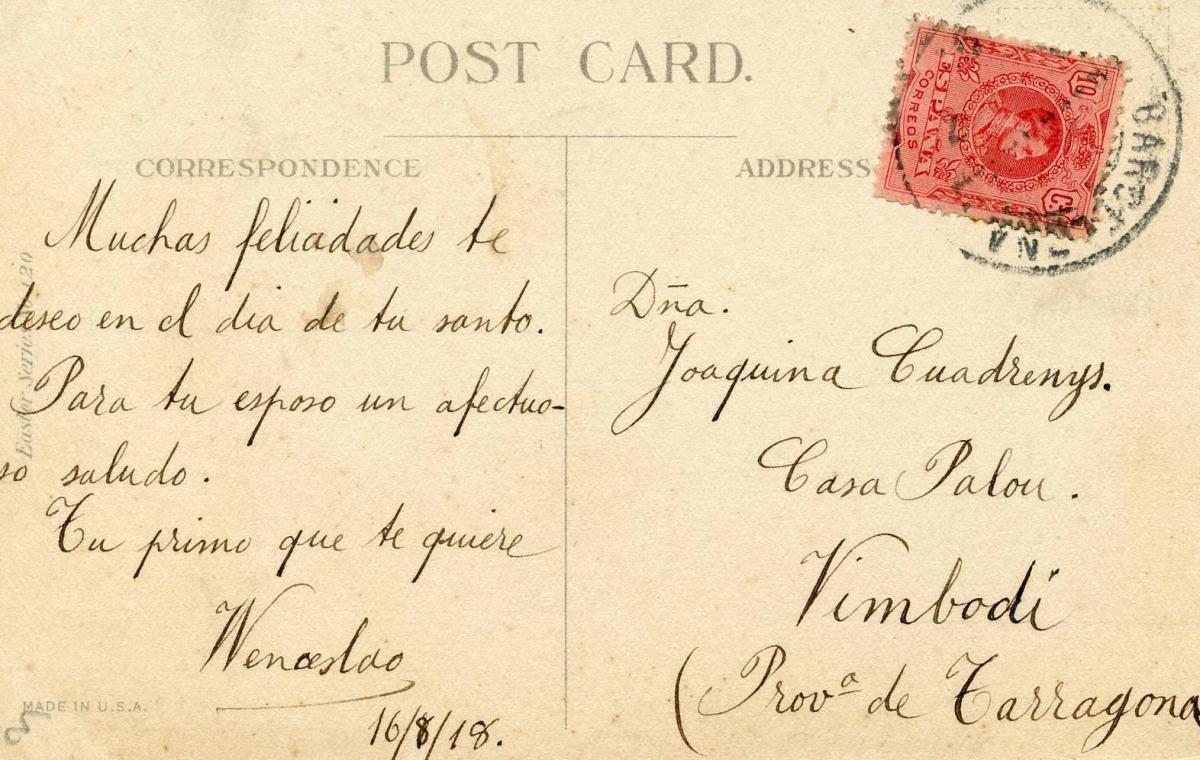 POST CARD.
CORRESPONDENCE
Muchas felicidades te
deseo en el dia de tu santo.
Para tu esposo un afectuo-
so saludo.
Tu primo que te quiere
Wenceslao
16/8/18.
Easter Series No. 120
MADE IN U.S.A.
2
ADDRESS
Dña.
Joaquina Cuadrenys.
Casa Palou.
Vimbodí
(Provª de Tarragona
ESPAÑA
CORREOS
10
C.
BARCELONA